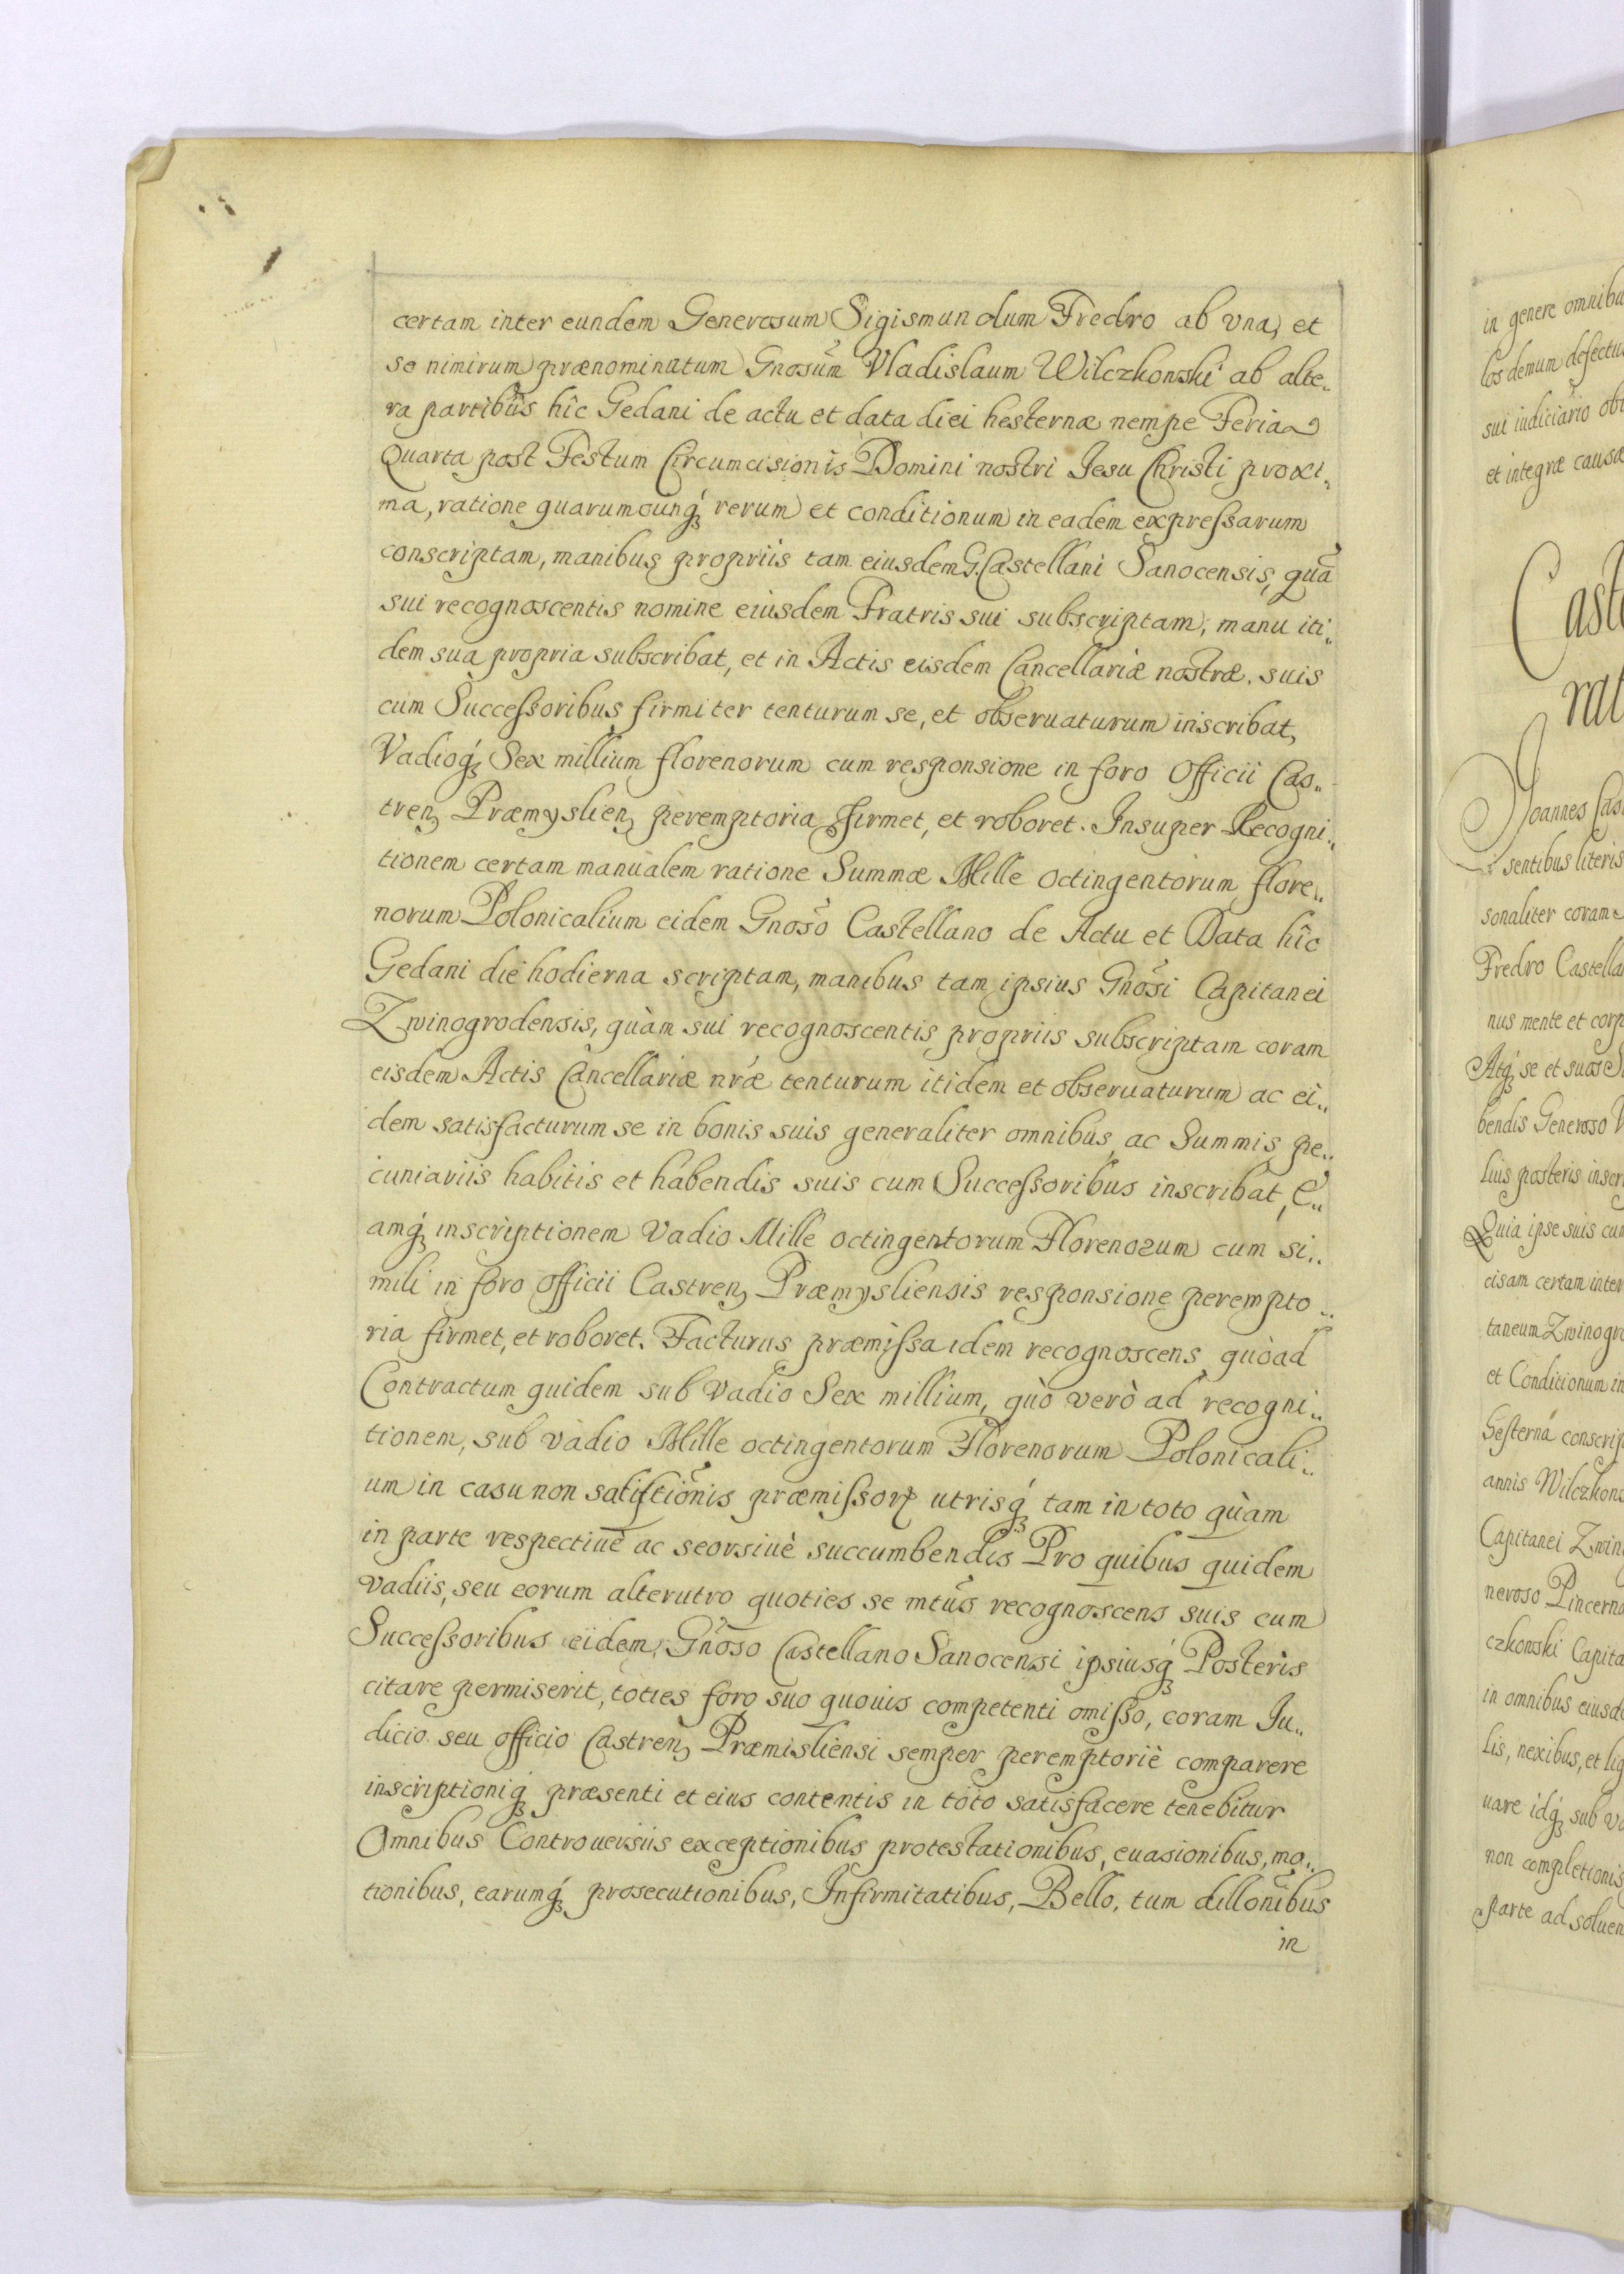 certam inter eundem Generosum Sigismundum Fredro ab vna, et
se nimirum prænominatum Gnosum̃ Vladislaum Wilczkowski ab alte„
ra partibus hîc Gedani de actu et data diei hesternæ nempe Feria
Quarta post Festum Circumcisionis Domini nostri Jesu Christi proxi„
ma, ratione quarumcunq́ꝫ rerum et conditionum in eadem expreſsarum
conscriptam, manibus propriis tam eiusdem G. Castellani Sanocensis, quã
sui recognoscentis nomine eiusdem Fratris sui subscriptam, manu iti„
dem sua propria subscribat, et in Actis eisdem Cancellariæ nostræ. suis
cum Succeſsoribus firmiter tenturum se, et obseruaturum inscribat,
Vadioq́ꝫ Sex millium florenorum cum responsione in foro Officii Cas„
trenꝫ Præmyslienꝫ peremptoria firmet, et roboret. Insuper Recogni„
tionem certam manualem ratione Summæ Mille octingentorum flore„
norum Polonicalium eidem Gnoso̍ Castellano de Actu et Data hîc
Gedani die hodierna scriptam, manibus tam ipsius Gno̍si Capitanei
Zwinogrodensis, quàm sui recognoscentis propriis subscriptam coram
eisdem Actis Cancellariæ nr̃æ tenturum itidem et obseruaturum ac ei„
dem satisfacturum se in bonis suis generaliter omnibus, ac Summis pe„
cuniariis habitis et habendis suis cum Succeſsoribus inscribat, E„
amq́ꝫ inscriptionem Vadio Mille octingentorum Florenorum cum si„
mili in foro officii Castrenꝫ Præmysliensis responsione perempto„
ria firmet, et roboret. Facturus præmiſsa idem recognoscens quòad
Contractum quidem sub Vadio Sex millium, quò verò ad recogni„
tionem, sub vadio Mille octingentorum Florenorum Polonicali„
um in casu non satisſtiõnis præmiſsorꝝ utrisq́ꝫ tam in toto quàm
in parte respectiuè ac seorsiuè succumbendis Pro quibus quidem
vadiis, seu eorum alterutro quoties se mtũs recognoscens suis cum
Succeſsoribus eidem Gnõso Castellano Sanocensi ipsiusq́ꝫ Posteris
citare permiserit, toties foro suo quouis competenti omiſso, coram Ju„
dicio seu officio Castrenꝫ Præmisliensi semper peremptoriè comparere
inscriptioniq́ꝫ præsenti et eius contentis in toto satisfacere tenebitur
Omnibus Controuersiis exceptionibus protestationibus, euasionibus, mo„
tionibus, earumq́ꝫ prosecutionibus, Infirmitatibus, Bello, tum dillõnibus
in
in genere omnibu
los demum defectu
sui iudiciario ob
et integræ causæ
Caste
rat
Joannes Cas
sentibus literis
sonaliter coram
Fredro Castella
nus mente et corp
Atq́ꝫ se et suos S
bendis Generoso V
liis posteris inser
Quia ipse suis cum
cisam certam inter
taneum Zwinogro
et Conditionum in
hesterná conscrip
annis Wilczkows
Capitanei Zwin
neroso Pincerna
czkowski Capita
in omnibus eiusde
lis, nexibus, et lig
uare idq́ꝫ sub va
non completionis
parte ad soluen